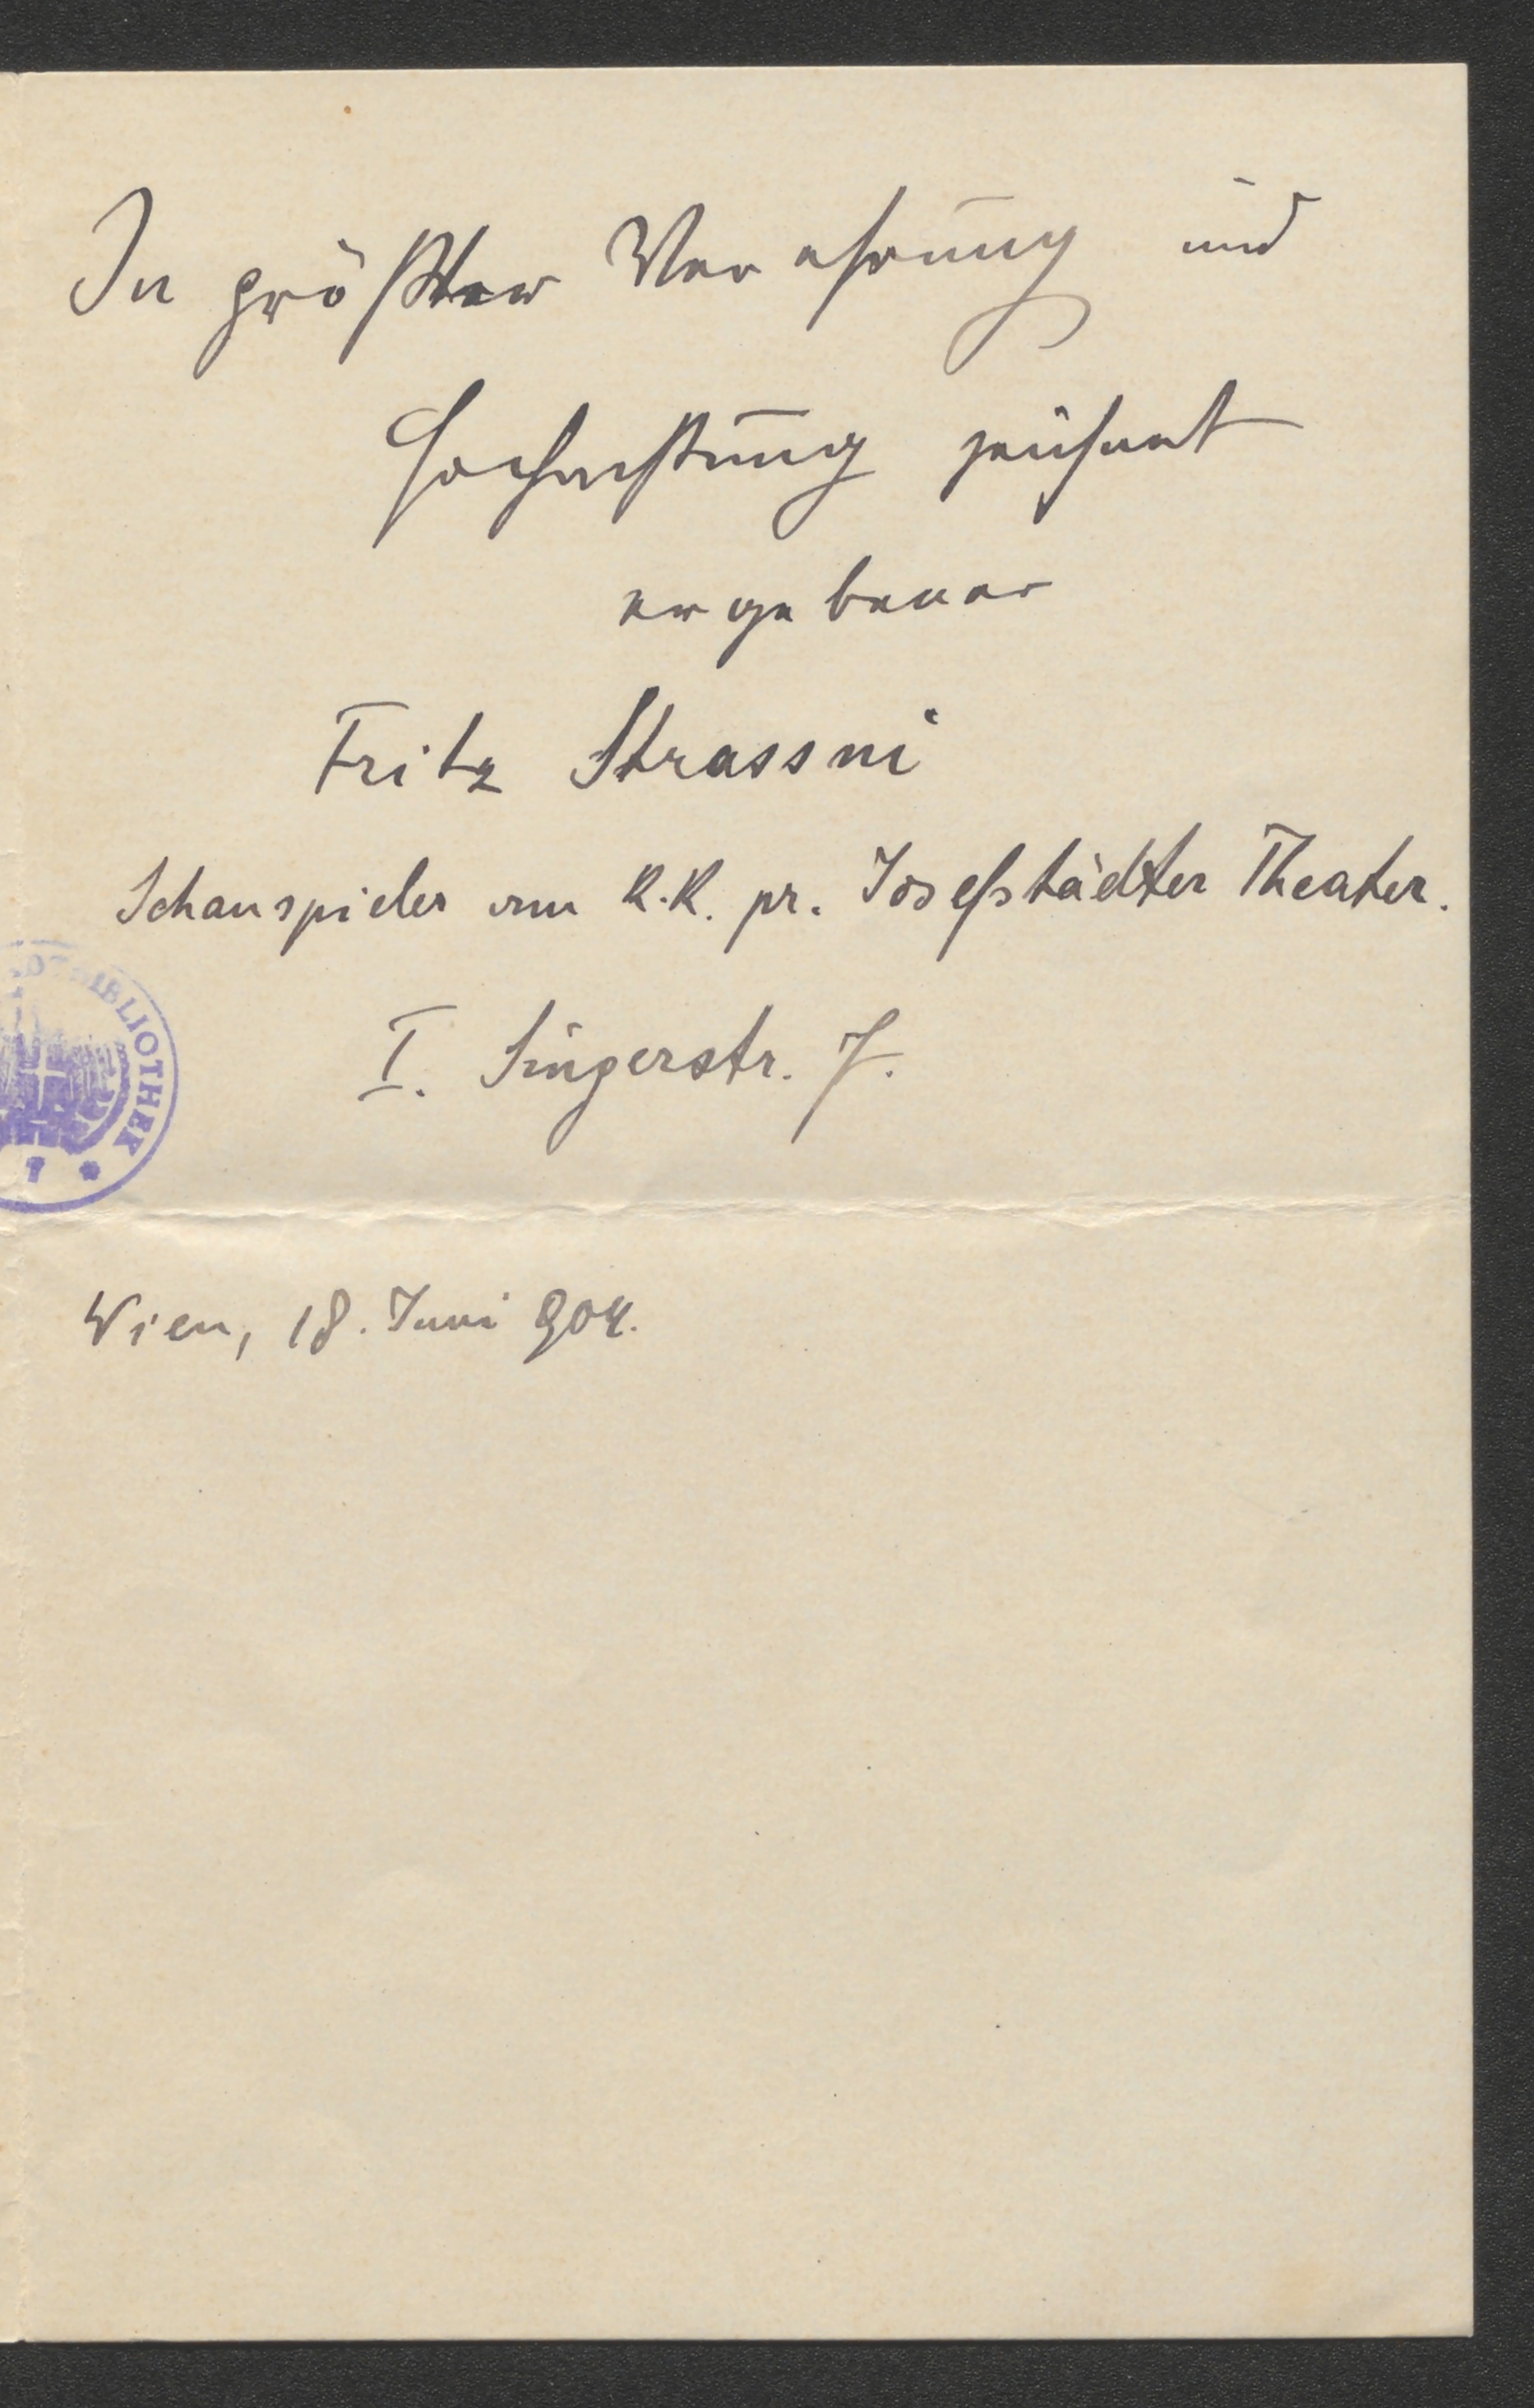 In größter Verehrung und
Hochachtung zeichnet
ergebener
Fritz Strassni
Schauspieler am K.K. pr. Josefstädter Theater.
BIBLIOTHEK
I. Singerstr. 7.
Wien, 18. Juni 904.